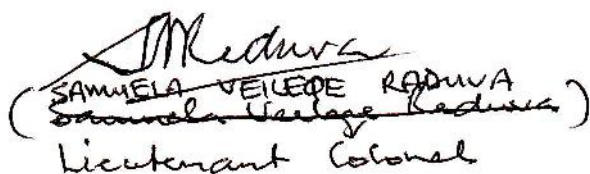 SAMUELA VEILEQE RADUVA
(Samuela Veileqe Raduva)
Lieutenant Colonel